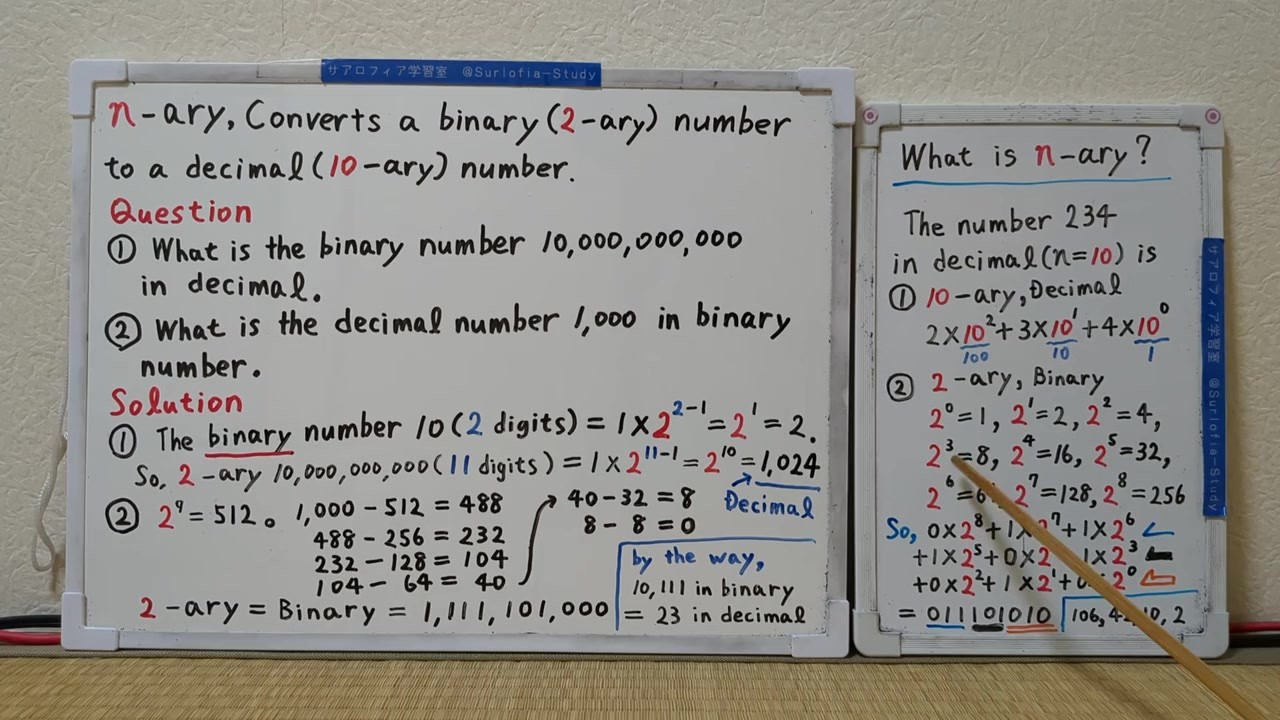 サアロフィア学習室 @Surlofia-Study
n-ary, Converts a binary (2-ary) number
to a decimal (10-ary) number.
Question
① What is the binary number 10,000,000,000
in decimal.
② What is the decimal number 1,000 in binary
number.
Solution
① The binary number 10 (2 digits) = 1×2²⁻¹ = 2¹ = 2.
So, 2-ary 10,000,000,000 (11 digits) = 1×2¹¹⁻¹ = 2¹⁰ = 1,024
Decimal
② 2⁹ = 512。 1,000 - 512 = 488
488 - 256 = 232
232 - 128 = 104
104 - 64 = 40
40 - 32 = 8
8 - 8 = 0
2-ary = Binary = 1,111,101,000
by the way,
10,111 in binary
= 23 in decimal
What is n-ary?
The number 234
in decimal (n=10) is
① 10-ary, Decimal
2×10²+3×10¹+4×10⁰
100 10 1
② 2-ary, Binary
2⁰=1, 2¹=2, 2²=4,
2³=8, 2⁴=16, 2⁵=32,
2⁶=6 2⁷=128, 2⁸=256
So, 0×2⁸+1× 2⁷+1×2⁶
+1×2⁵+0×2 1×2³
+0×2²+1×2¹+ 2⁰
= 011101010
106,4 10,2
サアロフィア学習室 @Surlofia-Study